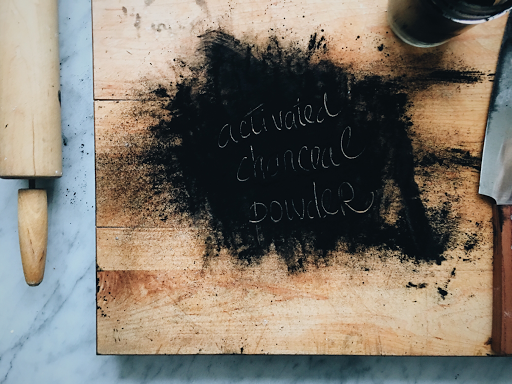 activated
charcoal
powder